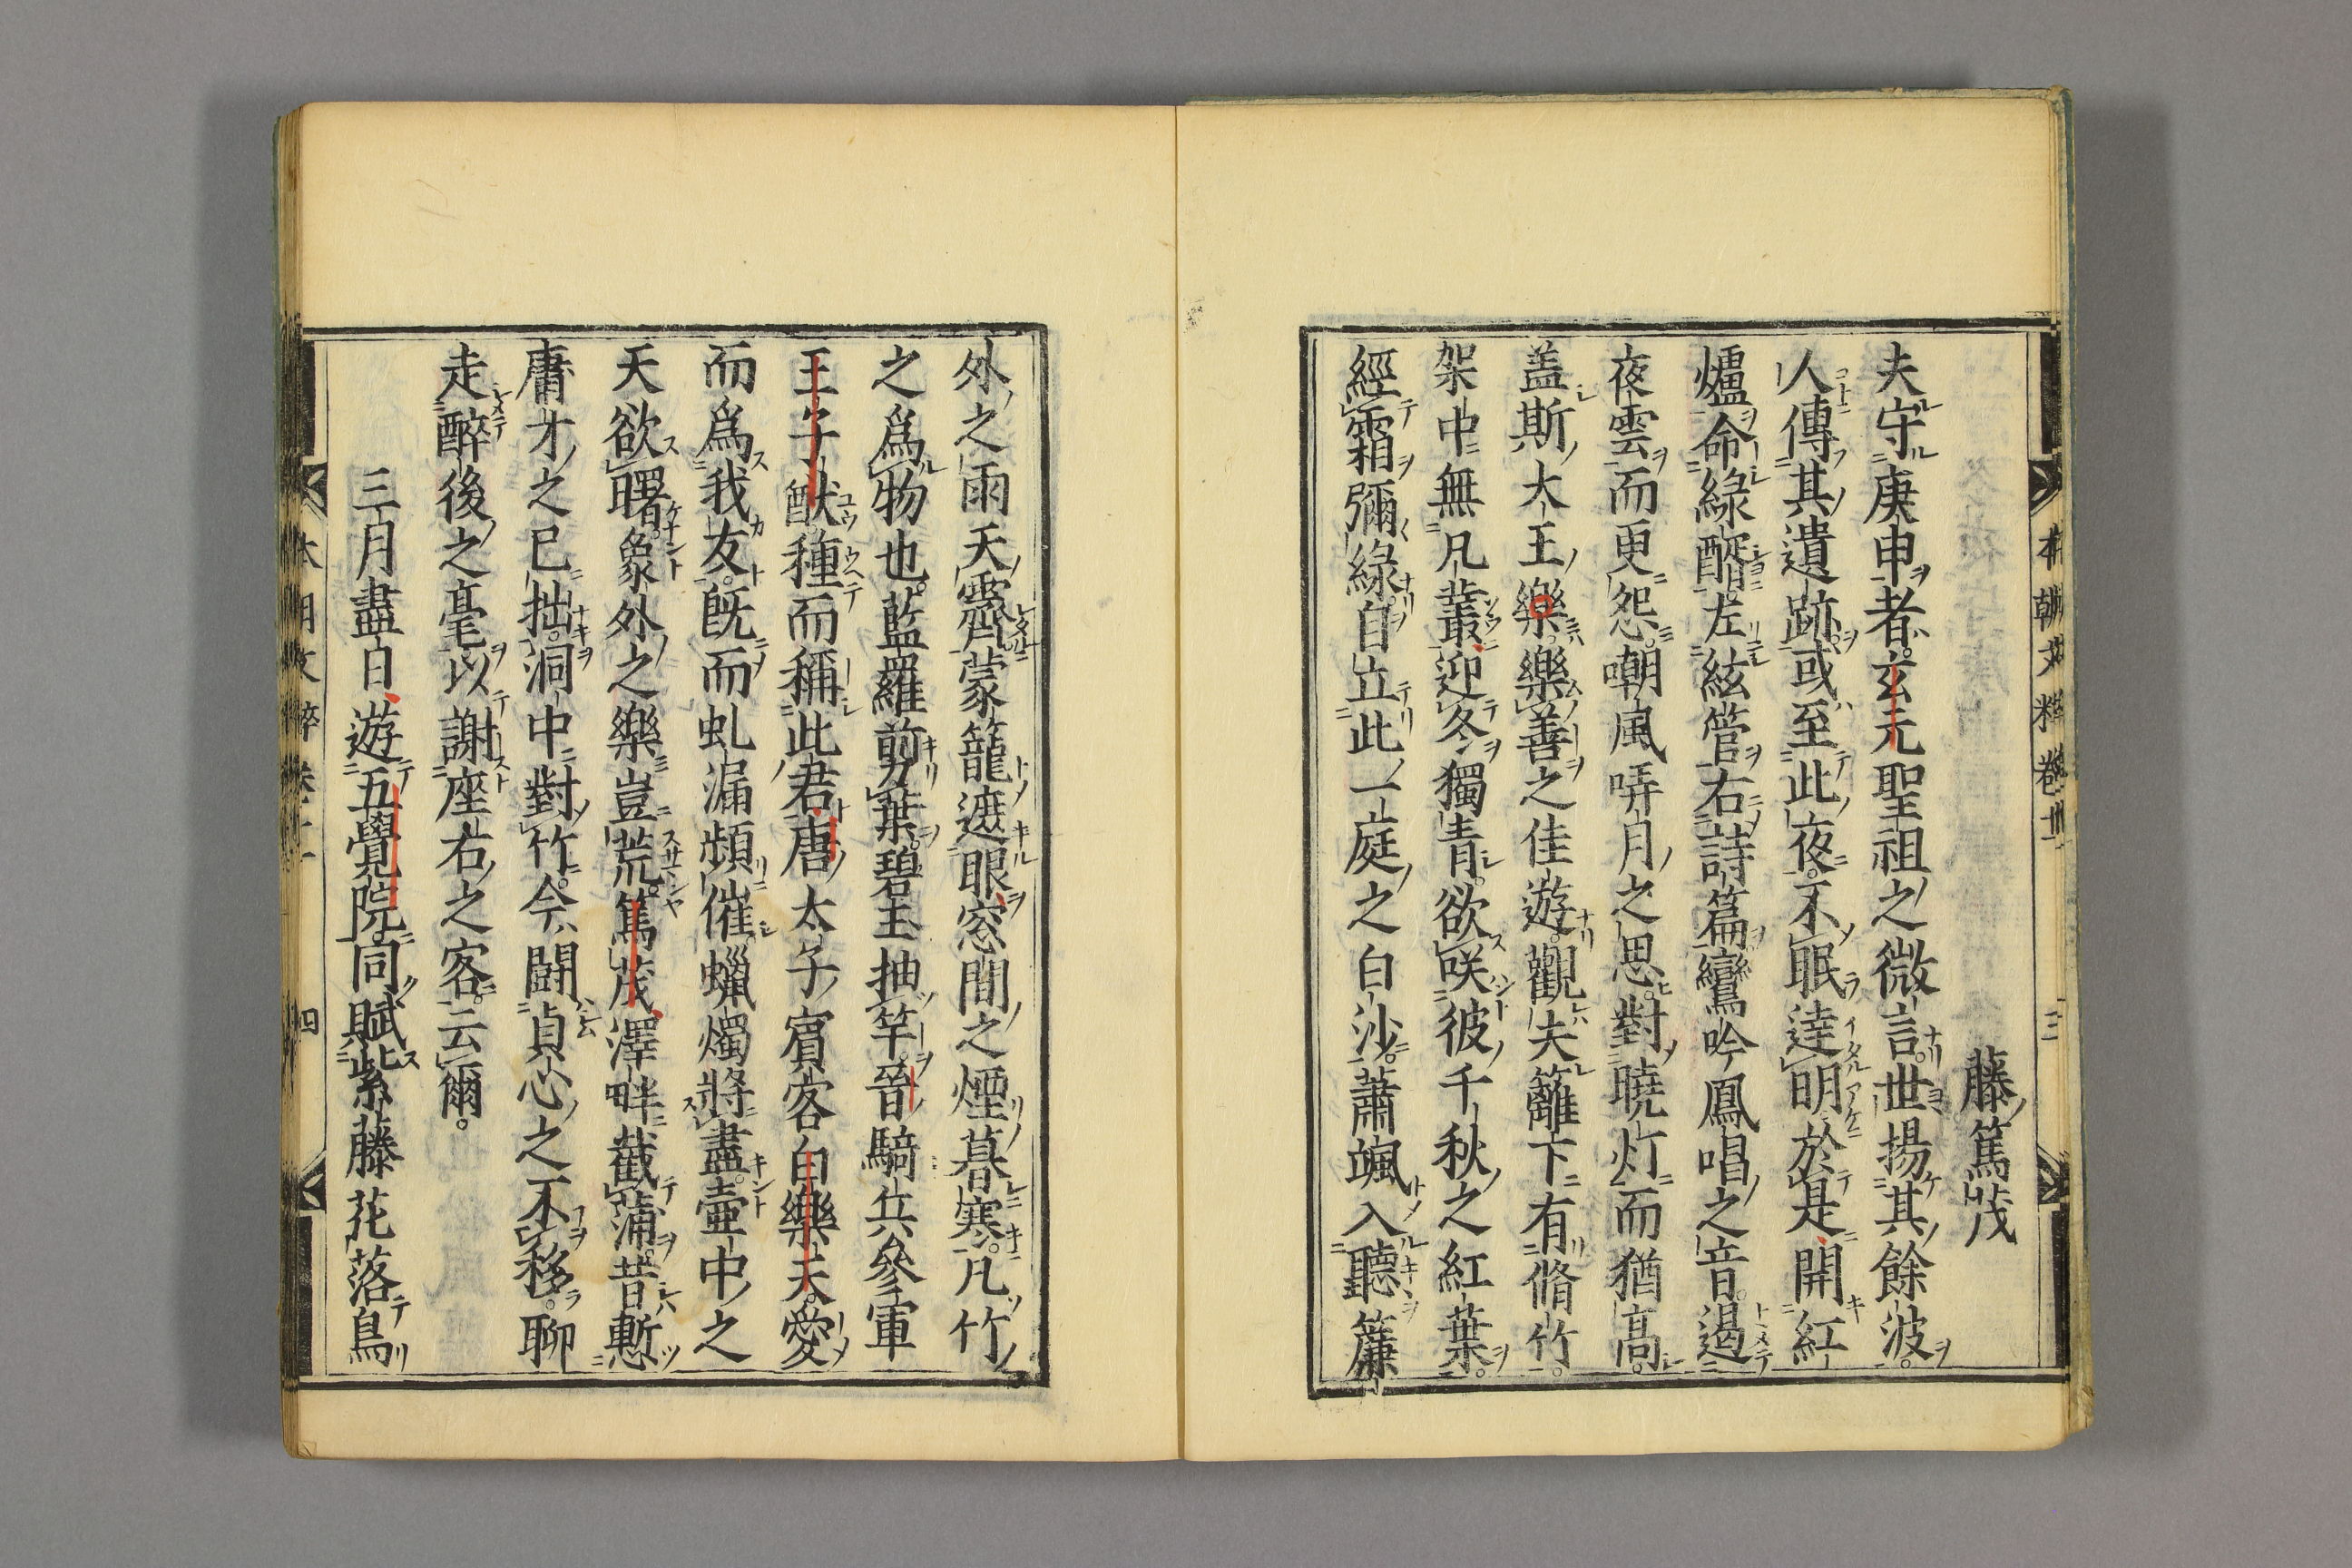 藤篤茂
夫守庚申者。玄元聖祖之微言。世揚其餘波。
人傳其遺跡。或至此夜。不眠達明。於是開紅
爐命綠醑。左絃管右詩篇。鸞吟鳳唱之音。遏
夜雲而更怨。嘲風哢月之思。對曉灯而猶高。
盖斯太王樂。樂善之佳遊。觀夫籬下有脩竹。
架中無凡叢。迎冬獨青。欲咲彼千秋之紅葉。
經霜彌綠。自立此一庭之白沙。蕭颯入聽簾
外之雨天霽。蒙籠遮眼窓間之煙暮寒。凡竹
之爲物也。藍羅剪葉。碧玉抽竿。晉騎兵參軍
王子猷種而稱此君。唐太子賓客白樂天。愛
而爲我友。既而虬漏頻催。蠟燭將盡。壷中之
天欲曙。象外之樂豈荒。篤茂澤畔截蒲。昔慙
庸才之已拙。洞中對竹。今闘貞心之不移。聊
走醉後之毫。以謝座右之客。云爾。
三月盡日遊五覺院。同賦紫藤花落鳥
本朝文粹卷十一
三
四